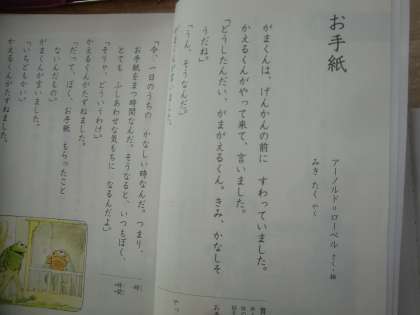 お手紙
アーノルド=ローベル さく・絵
みき たく やく
がまくんは、げんかんの前に すわっていました。
かえるくんがやって来て、言いました。
「どうしたんだい、がまがえるくん。きみ、かなしそ
うだね。」
「うん、そうなんだ。」
がまくんが言いました。
「今、一日のうちの かなしい時なんだ。つまり、
お手紙をまつ時間なんだ。そうなると、いつもぼく、
とても ふしあわせな気もちに なるんだよ。」
「そりゃ、どういうわけ。」
かえるくんがたずねました。
「だって、ぼく、お手紙 もらったこと
ないんだもの。」
がまくんが言いました。
「いちどもかい。」
かえるくんがたずねました。